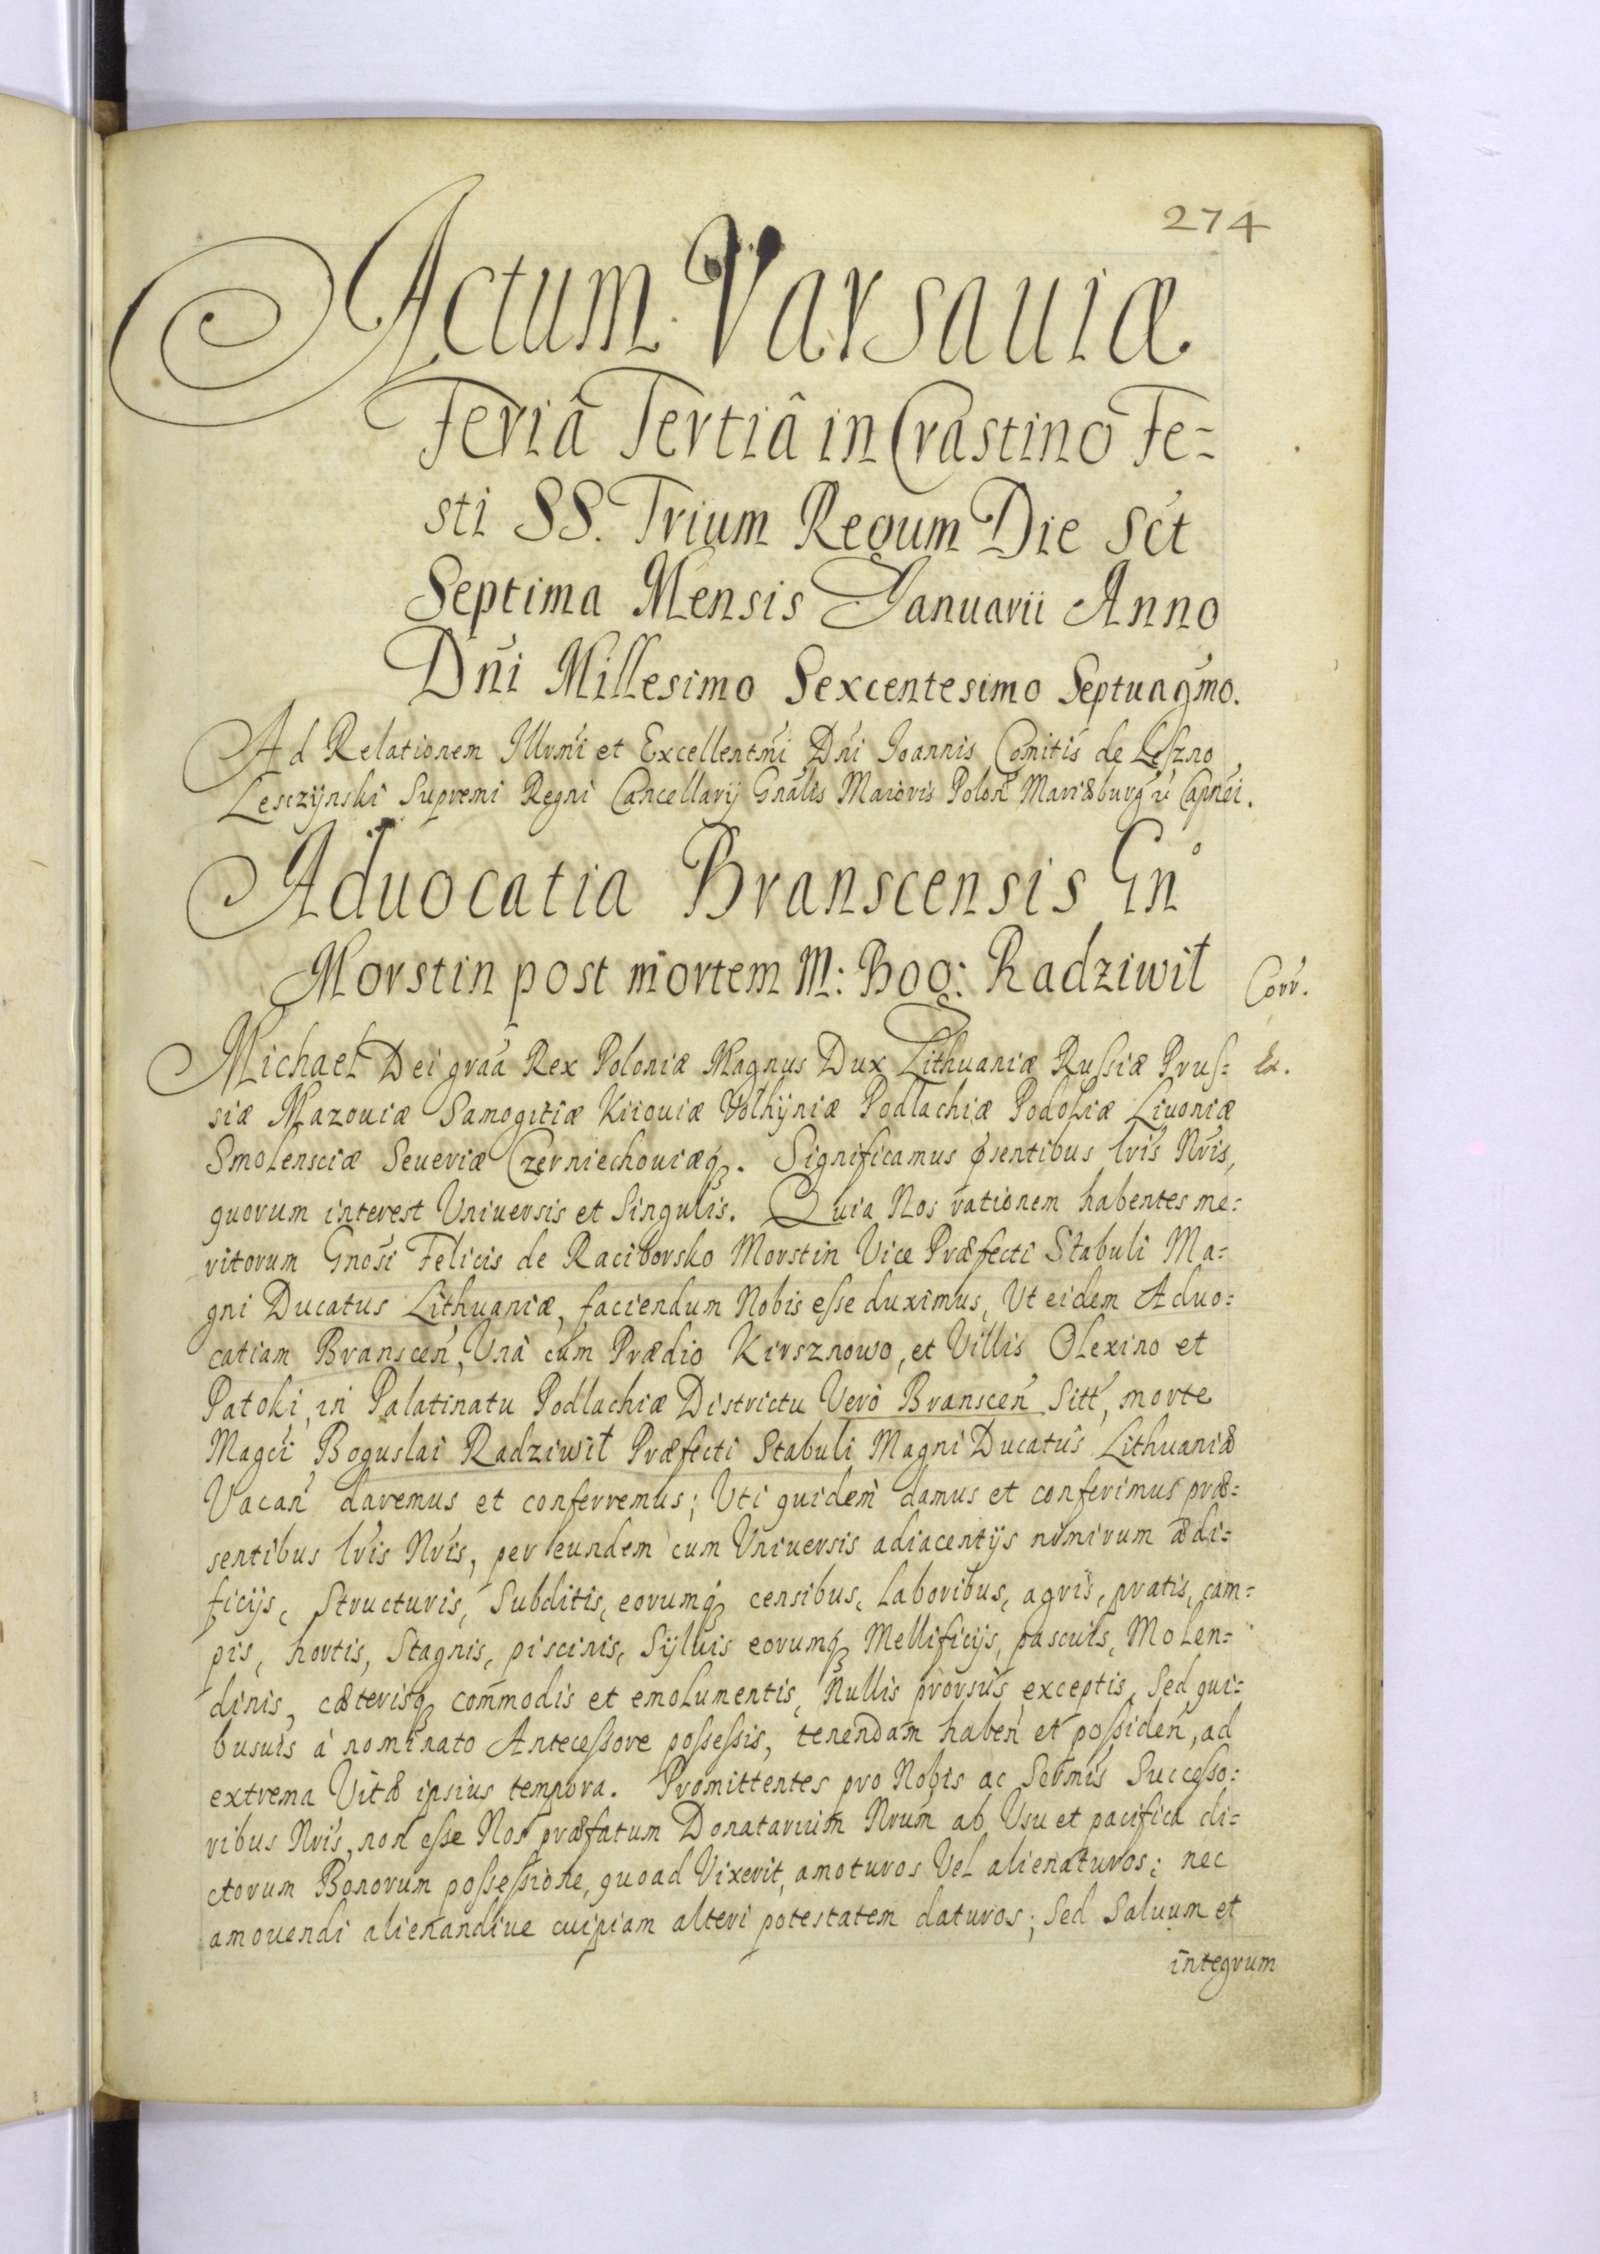 274
Actum Varsauiæ
Feriâ Tertiâ in Crastino Fe=
sti SS. Trium Regum Die Sct
Septima Mensis Januarii Anno
Dni Millesimo Sexcentesimo Septuagmo.
Ad Relationem Illvmi et Excellentmi Dni Joannis Comitis de Leszno
Lesczÿnski Supremi Regni Cancellarij Gnalis Maioris Polon Mariæburg Capnei.
Aduocatia Branscensis Gn°
Morstin post mortem M: Bog: Radziwił
Corr.
Ex.
Michael Dei graa Rex Poloniæ Magnus Dux Lithuaniæ Russiæ Prus=
siæ Mazouiæ Samogitiæ Kiiouiæ Volhÿniæ Podlachiæ Podoliæ Liuoniæ
Smolensciæ Seueriæ Czerniechouiæq. Significamus psentibus lris Nris,
quorum interest Vniuersis et Singulis. Quia Nos rationem habentes me=
ritorum Gnosi Felicis de Raciborsko Morstin Vice Præfecti Stabuli Ma=
gni Ducatus Lithuaniæ, faciendum Nobis esse duximus, Ut eidem Aduo=
catiam Branscen, Vnà cum Prædio Kirsznowo, et Villis Olexino et
Patoki, in Palatinatu Podlachiæ Districtu Verò Branscen Sitt, morte
Magci Boguslai Radziwił Præfecti Stabuli Magni Ducatus Lithuaniæ
Vacan daremus et conferremus; Vti quidem damus et conferimus præ=
sentibus lris Nris, per eundem cum Vniuersis adiacentijs nimirum ædi=
ficijs, Structuris, Subditis, eorumq censibus, laboribus, agris, pratis, cam=
pis, hortis, Stagnis, piscinis, Sÿluis eorumq Mellificijs, pascuis, Molen=
dinis, cæterisq commodis et emolumentis, Nullis prorsus exceptis, Sed qui=
busuis à nominato Antecessore possessis, tenendam haben et possiden, ad
extrema Vitæ ipsius tempora. Promittentes pro Nobis ac Sermis Successo=
ribus Nris, non esse Nos præfatum Donatarium Nrum ab Usu et pacifica di=
ctorum Bonorum possessione, quoad Vixerit, amoturos Vel alienaturos; nec
amouendi alienandiue cuipiam alteri potestatem daturos; Sed Saluum et
integrum